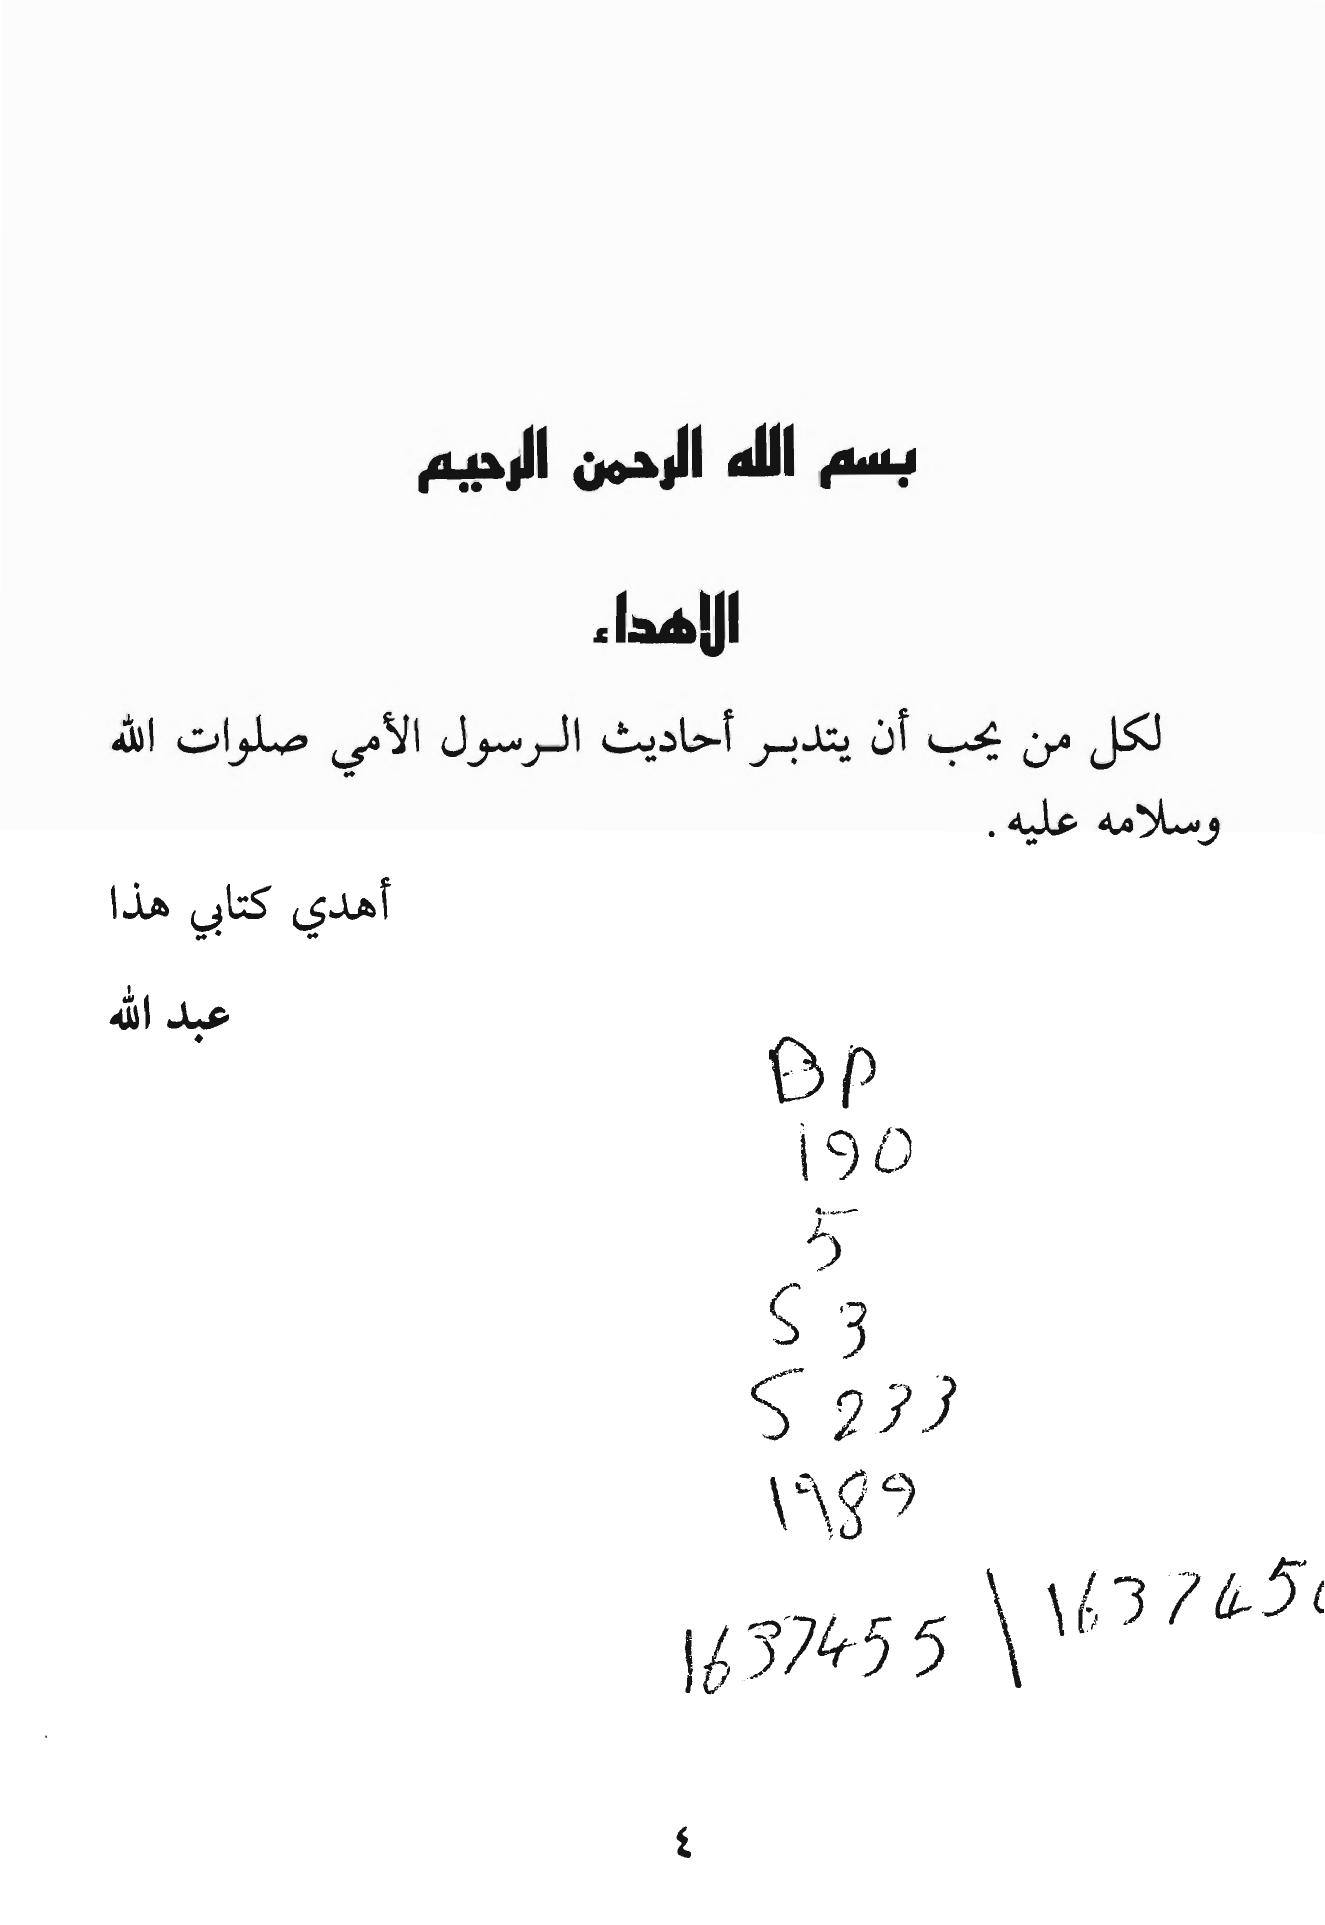 بسم الله الرحمن الرحيم
الإهداء
لكل من يحب أن يتدبر أحاديث الرسول الأمي صلوات الله
وسلامه عليه .
أهدي كتابي هذا
عبد الله
BP
190
5
S 3
S 233
1989
1637455 \ 163745
٤